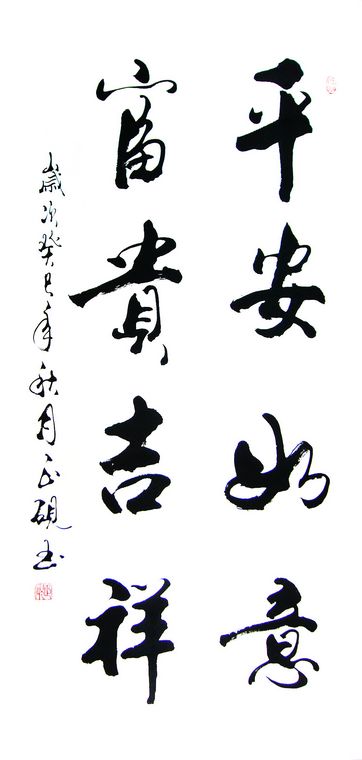 平安如意
富貴吉祥
歲次癸巳年秋月正硯书